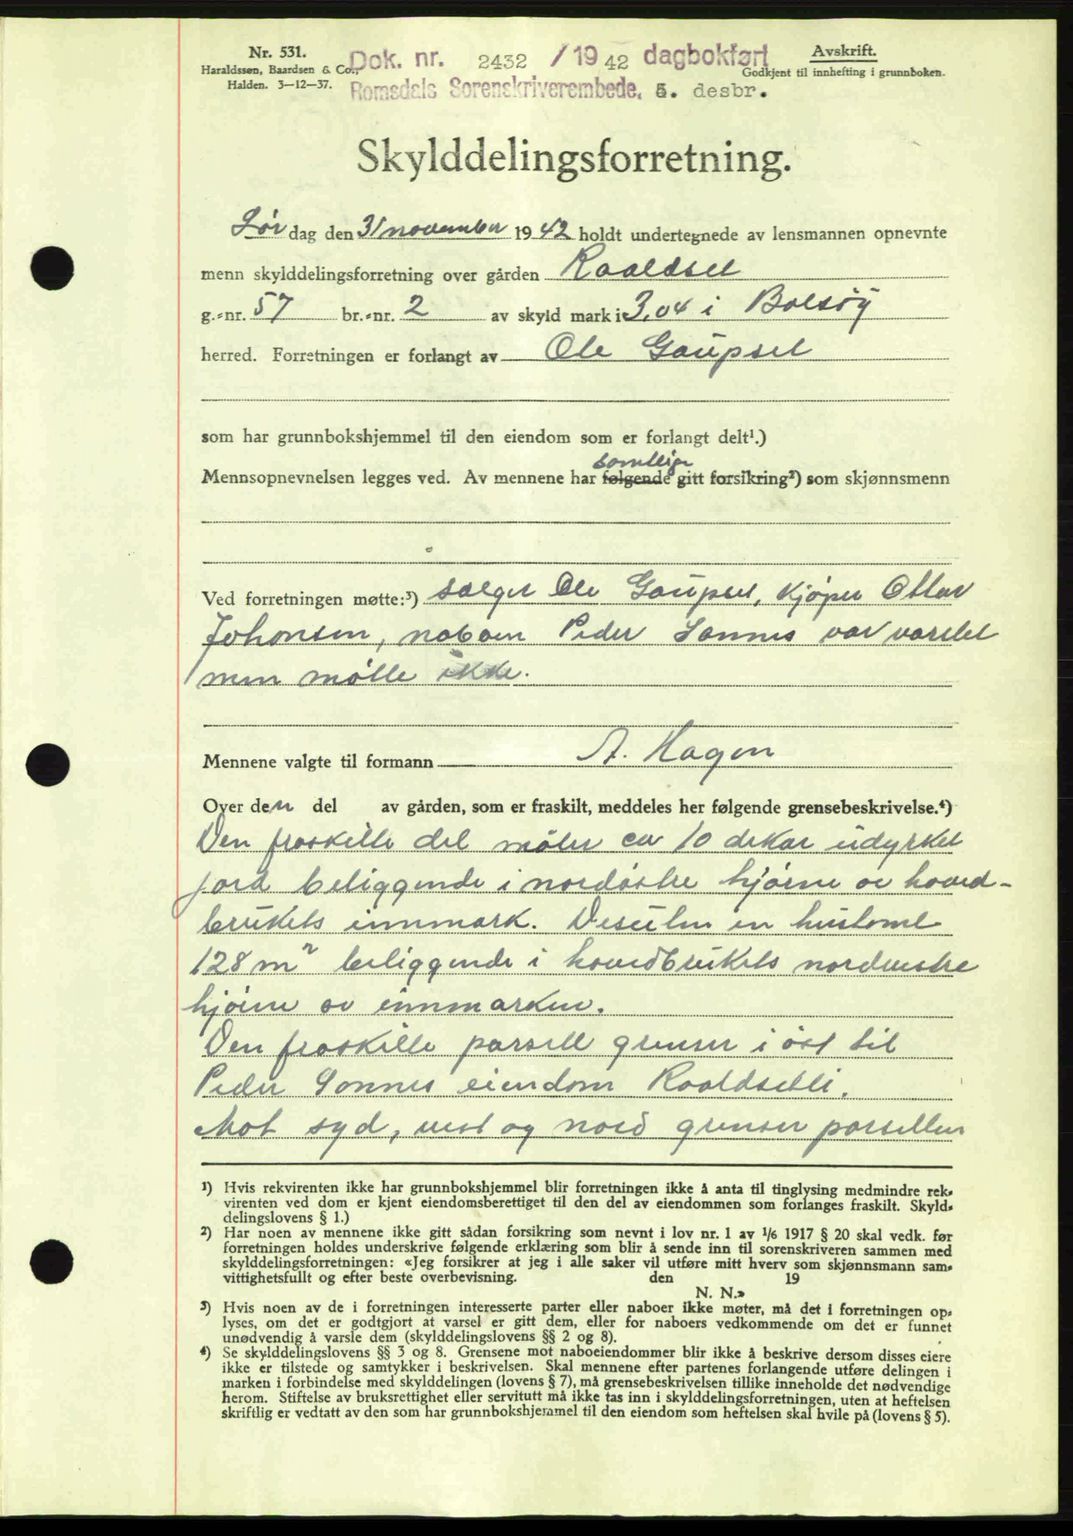 Nr. 531.
Haraldssen, Baardsen & Co.,
Halden. 3—12—37.
Dok. nr. 2432 /1942 dagbokført
Romsdals Sorenskriverembede, 5. desbr.
Avskrift.
Godkjent til innhefting i grunnboken.
Skylddelingsforretning.
Lør dag den 31 november 1942 holdt undertegnede av lensmannen opnevnte
menn skylddelingsforretning over gården Raaldset
g.-nr. 57 br.-nr. 2 av skyld mark i 3,04 i Bolsøy
herred. Forretningen er forlangt av Ole Gaupset
som har grunnbokshjemmel til den eiendom som er forlangt delt¹.)
samtlige
Mennsopnevnelsen legges ved. Av mennene har følgende gitt forsikring²) som skjønnsmenn
Ved forretningen møtte:³) sælger Ole Gaupset, kjøper Ottar
Johansen, naboen Peder Sonnes var varslet
men møtte ikke.
Mennene valgte til formann A. Hagen
Over den del av gården, som er fraskilt, meddeles her følgende grensebeskrivelse.⁴)
Den fraskilte del måler ca 10 dekar udyrket
jord beliggende i nordøstre hjørne av hoved-
brukets innmark. Desuten en hustomt
128 m² beliggende i hovedbrukets nordvestre
hjørne av innmarken.
Den fraskilte parsell grenser i øst til
Peder Sonnes eiendom Raaldsetli.
Mot syd, vest og nord grenser parsellen
¹) Hvis rekvirenten ikke har grunnbokshjemmel blir forretningen ikke å anta til tinglysing medmindre rek-
virenten ved dom er kjent eiendomsberettiget til den del av eiendommen som forlanges fraskilt. Skyld-
delingslovens § 1.)
²) Har noen av mennene ikke gitt sådan forsikring som nevnt i lov nr. 1 av 1/6 1917 § 20 skal vedk. før
forretningen holdes underskrive følgende erklæring som blir å sende inn til sorenskriveren sammen med
skylddelingsforretningen: «Jeg forsikrer at jeg i alle saker vil utføre mitt hverv som skjønnsmann sam-
vittighetsfullt og efter beste overbevisning. den 19
N. N.»
³) Hvis noen av de i forretningen interesserte parter eller naboer ikke møter, må det i forretningen op-
lyses, om det er godtgjort at varsel er gitt dem, eller for naboers vedkommende om det er funnet
unødvendig å varsle dem (skylddelingslovens §§ 2 og 8).
⁴) Se skylddelingslovens §§ 3 og 8. Grensene mot naboeiendommer blir ikke å beskrive dersom disses eiere
ikke er tilstede og samtykker i beskrivelsen. Skal mennene efter partenes forlangende utføre delingen i
marken i forbindelse med skylddelingen (lovens § 7), må grensebeskrivelsen tillike inneholde det nødvendige
herom. Stiftelse av bruksrettighet eller servitutt må ikke tas inn i skylddelingsforretningen, uten at heftelsen
skriftlig er vedtatt av den som har grunnbokshjemmel til den eiendom som heftelsen skal hvile på (lovens § 5).